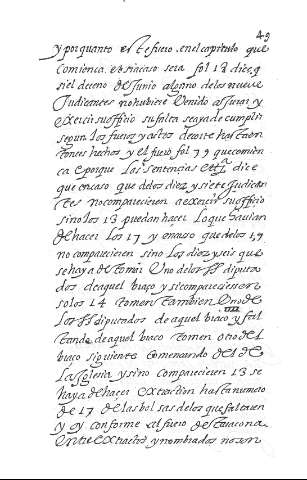 49
y porquanto este fuero en el capitulo que
comienca et si acaso sera fol 18 dice q
si el deceno de Junio alguno de los nueve
Judicantes no hubiere Venido a Jurar y
exercir su officio su falta se aya de cumplir
segun los fueros y actos de corte hasta en
tonces hechos y el fuero fol 79 que comien
ca E porque las sentencias etc dice
que en caso que de los diez y siete Judican
tes no comparecieren a exercir su officio
sino los 13 puedan hacer lo que havian
de hacer los 17 y en caso que de los 17
no comparecieren sino los diez y seis que
se haya de tomar Uno de los SS diputa
dos de aquel braço y si comparecieren
solos 14 tomen tambien Uno de
los SS diputados de aquel braço y fal
tando de aquel braco tomen otro del
braço siguiente comenzando del de
La Iglesia y si no comparecieren 13 se
haya de hacer extraction hasta numero
de 17 de las bolsas de los que faltaren
y oy conforme al fuero de Taraçona
entre extractos y nombrados no son